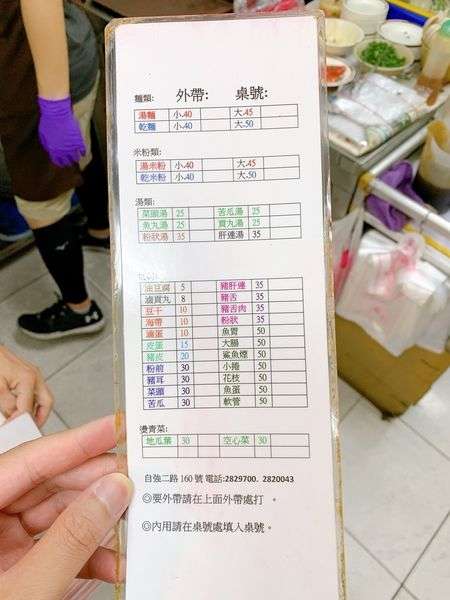 麵類: 外帶: 桌號:
湯麵 小.40 大.45
乾麵 小.40 大.50
米粉類:
湯米粉 小.40 大.45
乾米粉 小.40 大.50
湯類:
菜頭湯 25 苦瓜湯 25
魚丸湯 25 貢丸湯 25
粉狀湯 35 肝連湯 35
油豆腐 5 豬肝連 35
滷貢丸 8 豬舌 35
豆干 10 豬舌肉 35
海帶 10 粉狀 35
滷蛋 10 魚胃 50
皮蛋 15 大腸 50
豬皮 20 鯊魚煙 50
粉前 30 小捲 50
豬耳 30 花枝 50
菜頭 30 魚蛋 50
苦瓜 30 軟管 50
燙青菜:
地瓜葉 30 空心菜 30
自強二路 160 號 電話:2829700. 2820043
◎要外帶請在上面外帶處打 。
◎內用請在桌號處填入桌號。